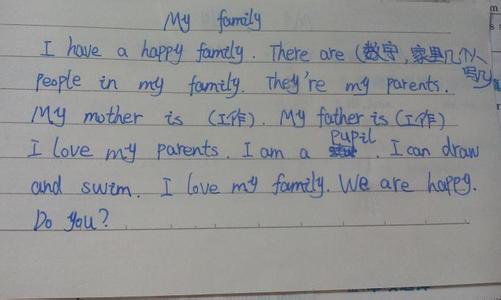 My family
I have a happy family. There are (数字,家里几个人写几)
people in my family. They're my parents.
My mother is (工作). My father is (工作)
I love my parents. I am a pupil. I can draw
and swim. I love my family. We are happy.
Do you?